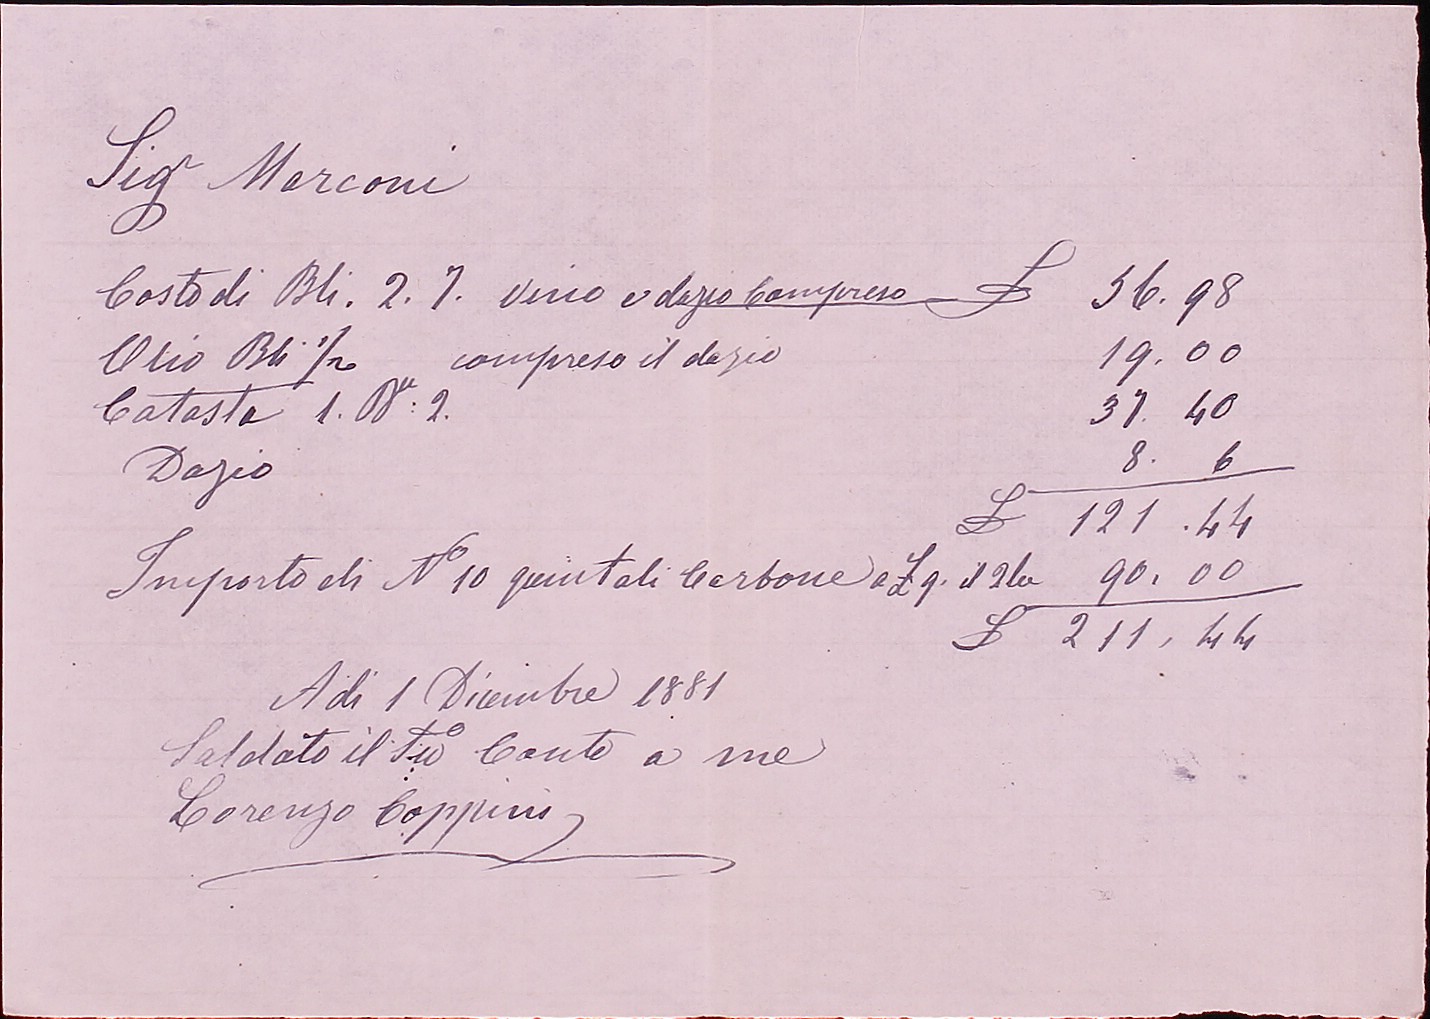 Sigr Marconi
Costo di Bli. 2. 7. vino e dazio Compreso £ 56.98
Olio Bli 1/2 compreso il dazio 19.00
Catasta 1. 2. 37.40
Dazio 8. 6
£ 121.44
Importo di No 10 quintali Carbone a £ 9. il 90.00
£ 211,44
A di 1 Dicembre 1881
Saldato il Conto a me
Lorenzo Coppini